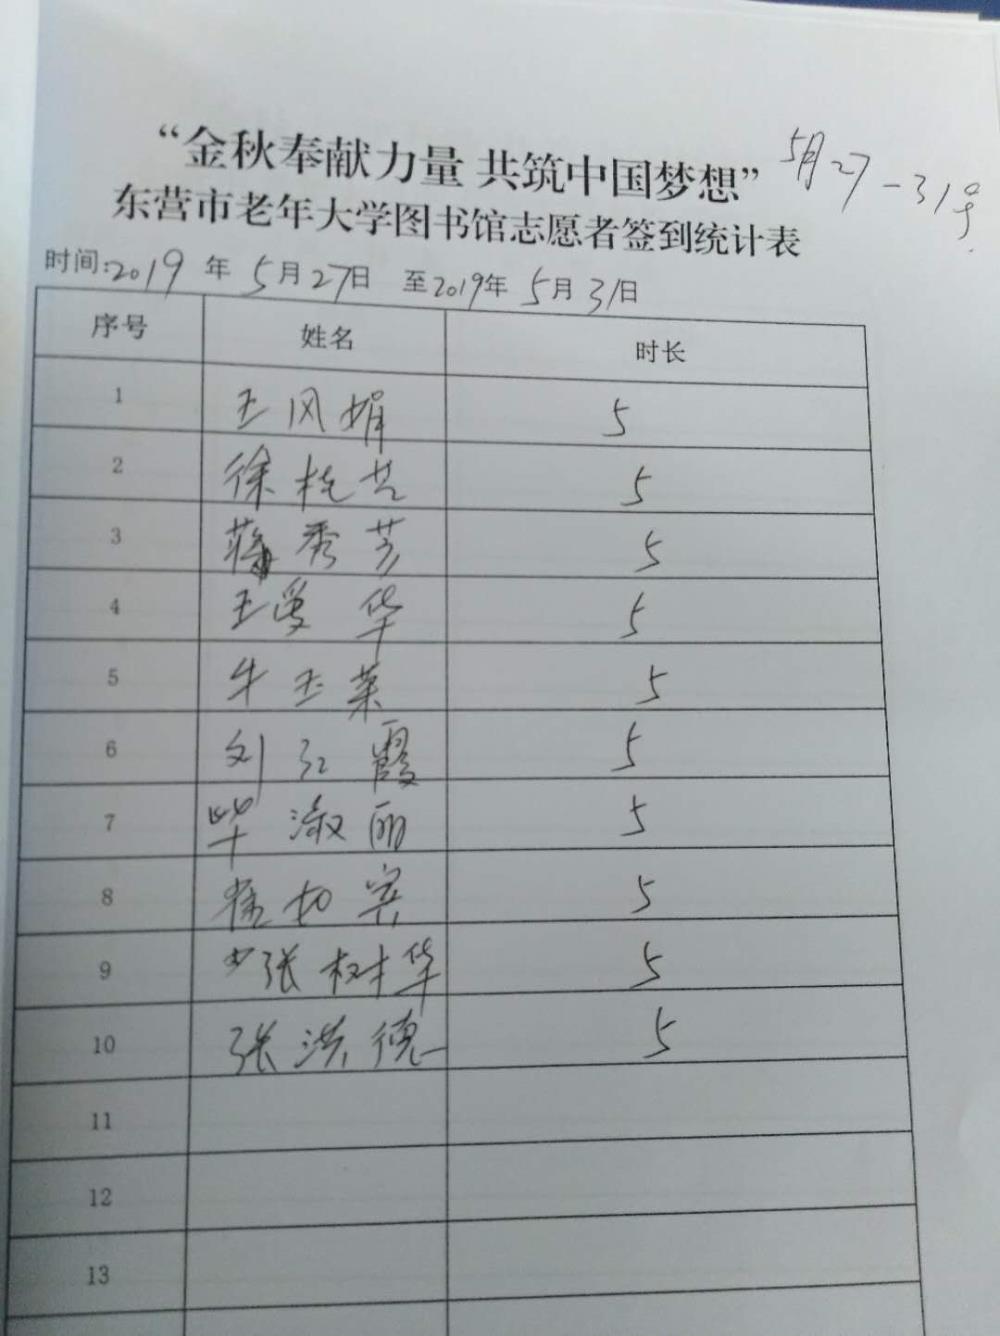 “金秋奉献力量 共筑中国梦想” 5月27-31号
东营市老年大学图书馆志愿者签到统计表
时间:2019年5月27日 至2019年5月31日
序号 姓名 时长
1 王风娟 5
2 徐桂兰 5
3 蒋秀芳 5
4 王爱华 5
5 牛玉菜 5
6 刘红霞 5
7 毕淑丽 5
8 5
9 张树华 5
10 张洪德 5
11
12
13